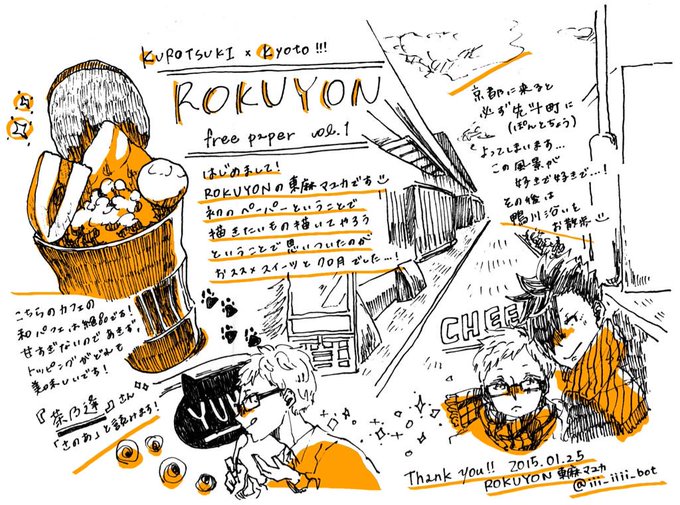 KUROTSUKI × KYOTO!!!
ROKUYON
free paper vol.1
はじめまして!
ROKUYONの東麻マユカです
初のペーパーということで
描きたいもの描いてやろう
ということで思いついたのが
おススメスイーツとクロ月でした…!
京都に来ると
必ず先斗町に
(ぽんとちょう)
よってしまいます…
この風景が
好きで好きで…!
その後は
鴨川沿いを
お散歩
こちらのカフェの
和パフェは絶品です!
甘すぎないのであきず、
トッピングがどれも
美味しいです!
『茶乃逢』さん
「さのあ」と読みます!
YUK
CHEE
Thank you!! 2015.01.25
ROKUYON 東麻マユカ
@iii_iiii_bot